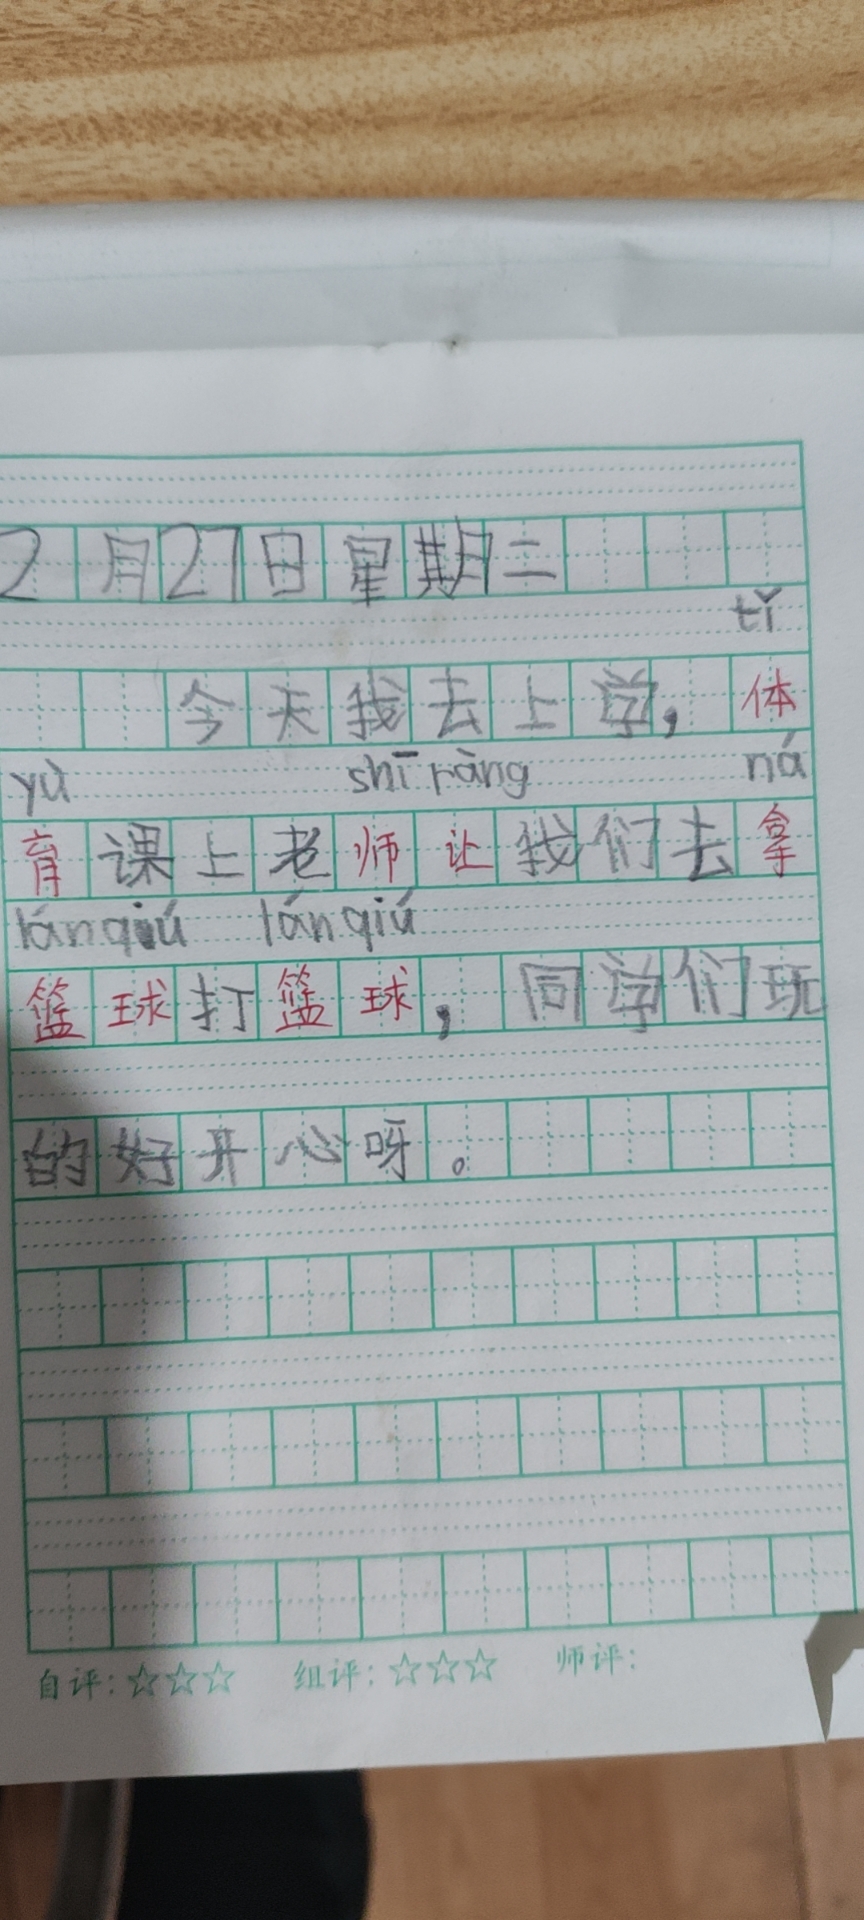 2月27日星期二
tǐ
今天我去上学，体
yù shī ràng ná
育课上老师让我们去拿
lánqiú lánqiú
篮球打篮球，同学们玩
的好开心呀。
自评：☆☆☆ 组评：☆☆☆ 师评：